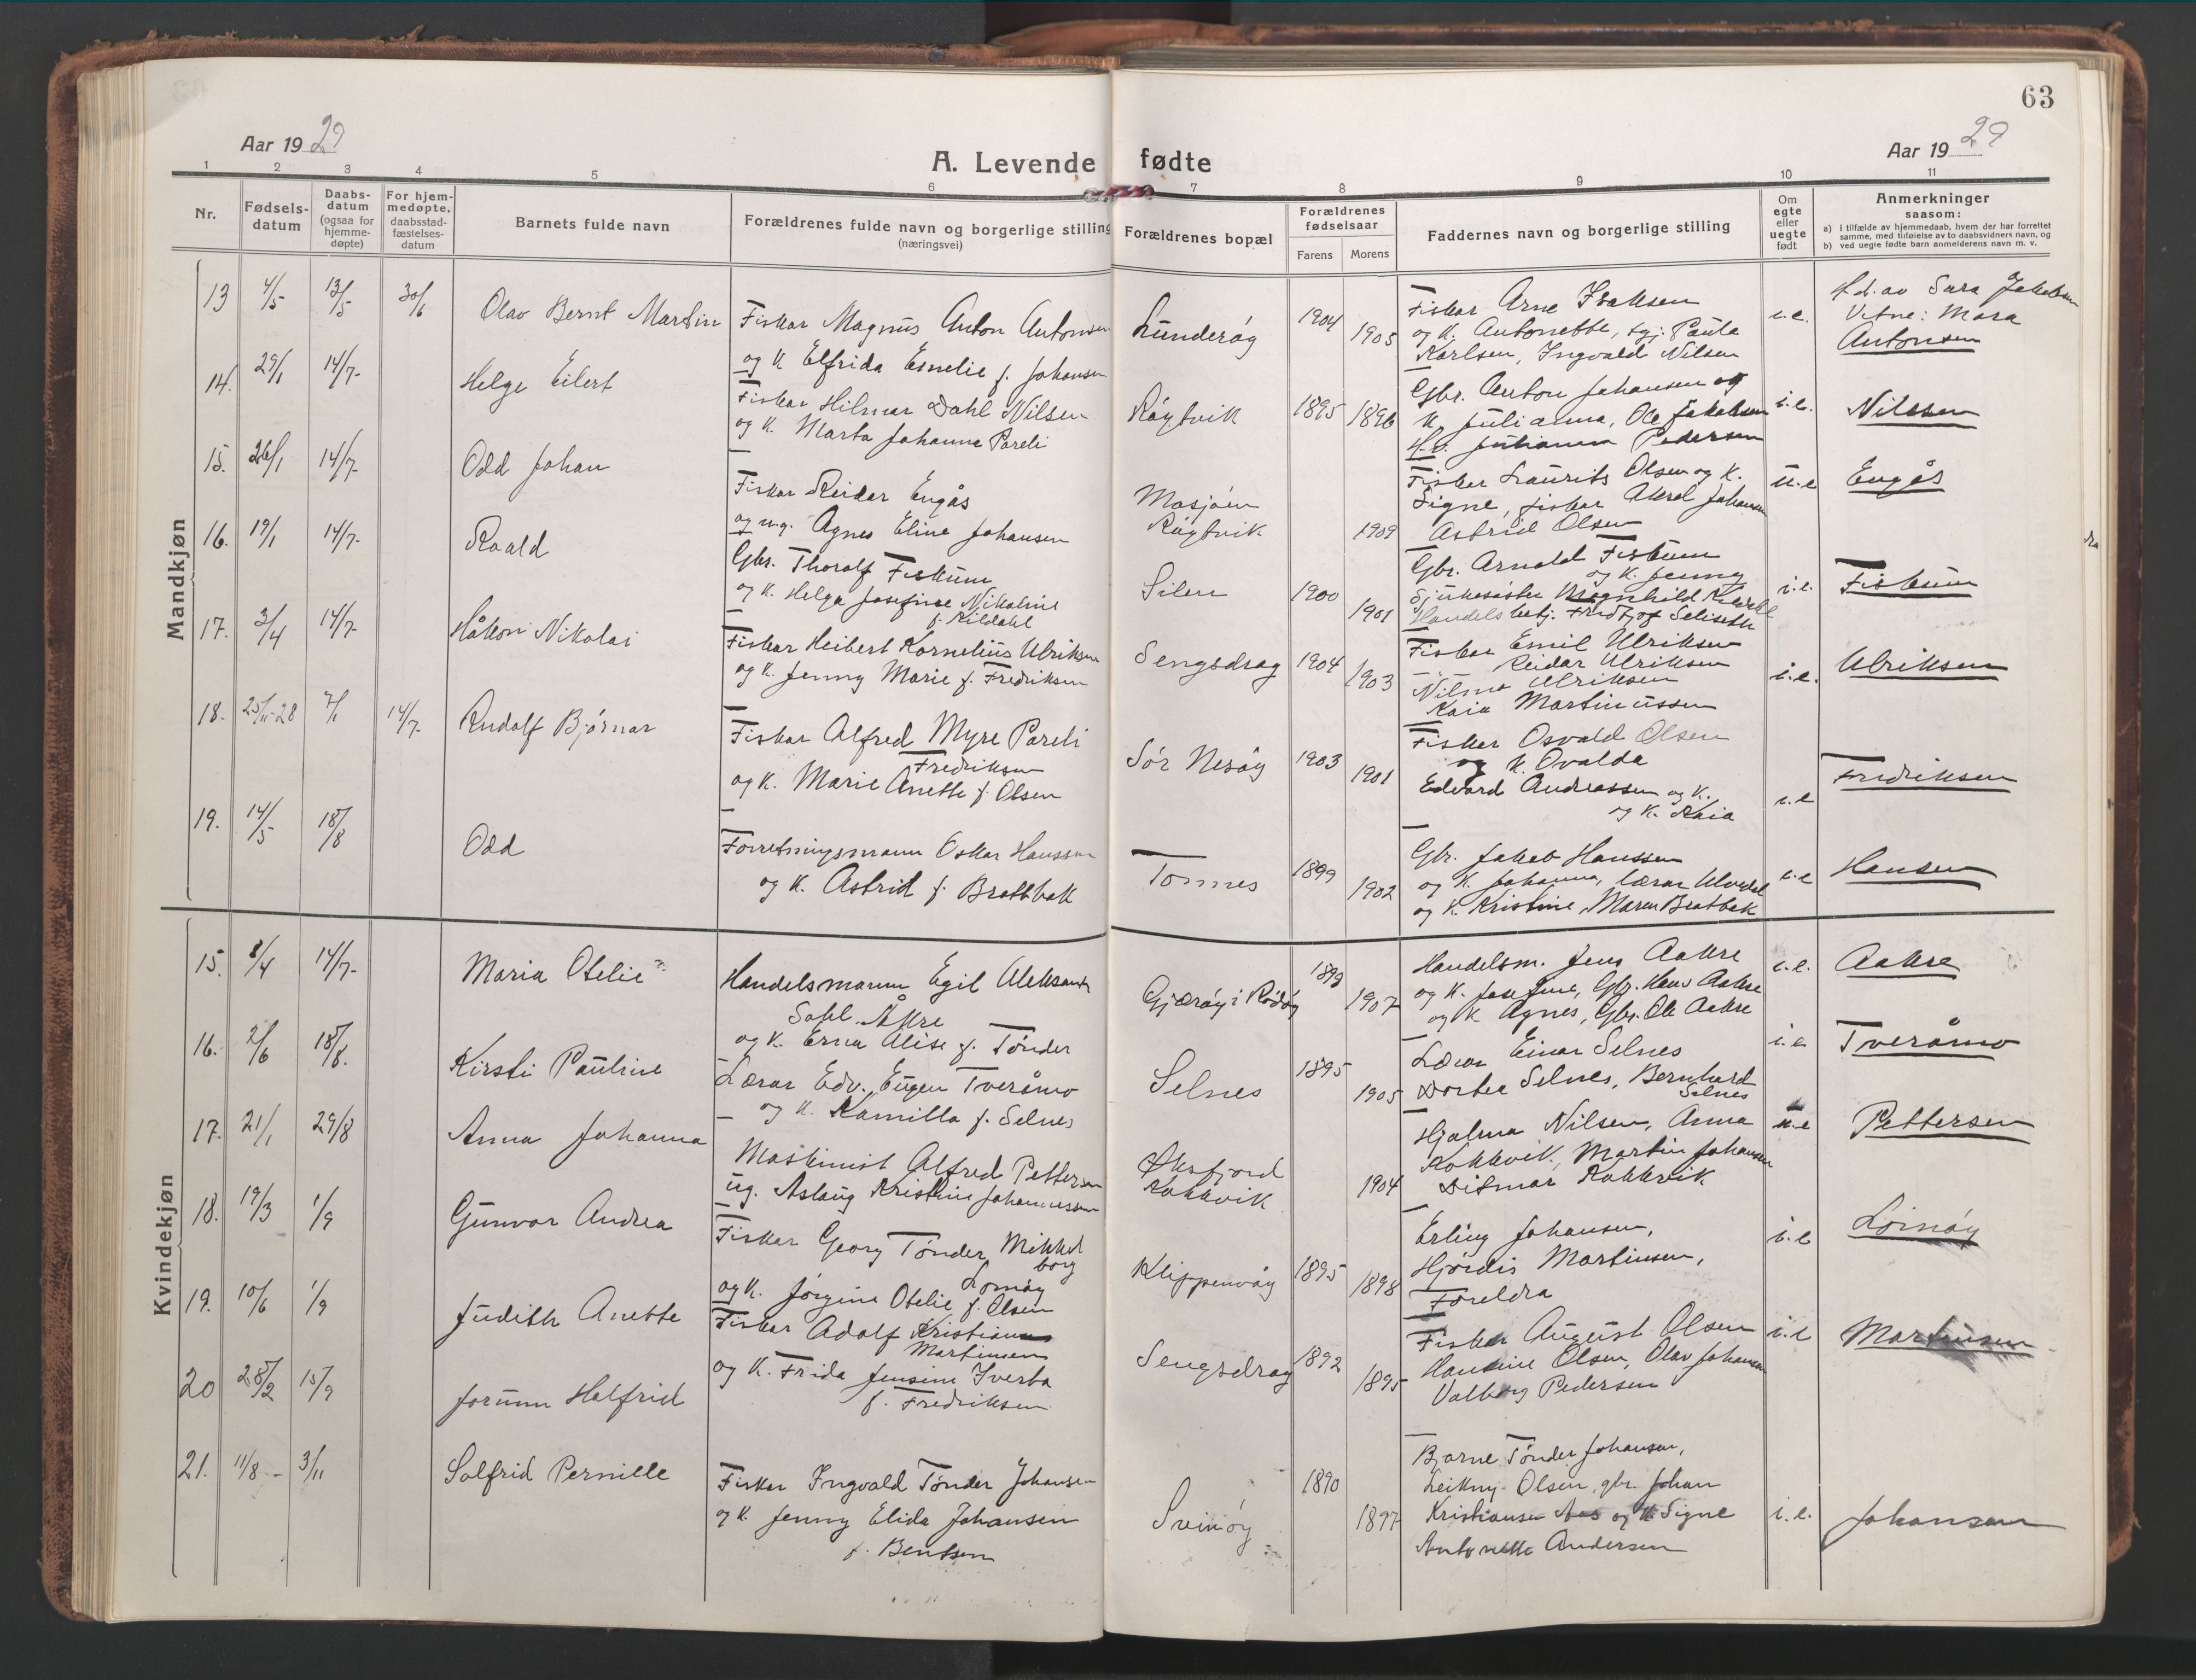 63
Aar 19 29
A. Levende fødte
Aar 19 29
1 2 3 4 5 6 7 8 9 10 11
Nr.
Fødsels-
datum
Daabs-
datum
(ogsaa for
hjemme-
døpte)
For hjem-
medøpte,
daabsstad-
fæstelses-
datum
Barnets fulde navn
Forældrenes fulde navn og borgerlige stilling
(næringsvei)
Forældrenes bopæl
Forældrenes
fødselsaar
Farens Morens
Faddernes navn og borgerlige stilling
Om
egte
eller
uegte
født
Anmerkninger
saasom:
a) i tilfælde av hjemmedaab, hvem der har forrettet
samme, med tilføielse av to daabsvidners navn, og
b) ved uegte fødte barn anmelderens navn m. v.
Mandkjøn
13 4/5 13/5 30/6 Olav Bernt Martin
Fiskar Magnus Anton Antonsen
og K. Elfrida Emelie f. Johansen
Lunderøy 1904 1905
Fiskar Arne Isaksen
og K. Antonette, Paula
Karlsen, Ingvald Nilsen
i.e.
h.d. av Sara Jakobsen
Vitne: Mara
Antonsen
14. 29/1 14/7- Helge Eilert
Fiskar Hilmar Dahl Nilsen
og K. Marta Johanna Pareli
Røytvik 1895 1896
Gbr. Anton Johansen og
K. Julianna, Ole Jakobsen
Julianna Pedersen
i.e. Nilssen
15. 26/1 14/7- Odd Johan
Fiskar Reidar Engås
og ug. Agnes Eline Johansen
Mosjøen
Røytvik 1909
Fisker Laurits Olsen og K.
Signe, fiskar Aksel Johansen
Astrid Olsen
u.e Engås
16. 19/1 14/7- Roald
Gbr. Thoralf Fiskum
og K. Helga Josefine Nikoline
f. Kildahl
Silen 1900 1901
Gbr. Arnold Fiskum
og K. Jenny
Sjukesøster Magnhild
Handelsbetj. Fridtjof
i.e. Fiskum
17. 3/4 14/7- Håkon Nikolai
Fiskar Heibert Kornelius Ulriksen
og K. Jenny Marie f. Fredriksen
Sengsdrag 1904 1903
Fiskar Emil Ulriksen
Reidar Ulriksen
Ulriksen
Kaia Martinussen
i.e. Ulriksen
18. 25/11-28 7/1 14/7- Rudolf Bjørnar
Fiskar Alfred Myre Pareli
Fredriksen
og K. Marie Anette f. Olsen
Sør Nesøy 1903 1901
Fisker Osvald Olsen
og K. Ovalda
Edvard Andreassen og K.
og K. Kaia
i.e Fredriksen
19. 14/5 18/8 Odd
Forretningsmann Oskar Hanssen
og K. Astrid f. Brattbak
Tonnes 1899 1902
Gbr. Jakob Hanssen
og K. Johanna, lærar
og K. Kristine, Maren Bratbak
i.e Hansen
Kvindekjøn
15. 8/4 14/7- Maria Otelie
Handelsmann Egil Aleksander
Åkre
og K. Erna Alise f. Tønder
Gjærøy i Rødøy 1899 1907
Handelsm. Jens Aakre
og K. Josefine, Gbr. Hans Aakre
og K. Agnes, Gbr. Ole Aakre
i.e. Aakre
16. 2/6 18/8. Kirsti Pauline
Lærar Edv. Eugen Tveråmo
og K. Kamilla f. Selnes
Selnes 1895 1905
Lærar Einar Selnes
Dortea Selnes, Bernhard
Selnes
i.e Tveråmo
17. 21/1 29/8 Anna Johanna
Maskinist Alfred Pettersen
ug. Aslaug Kristine Johannessen
Øksfjord
Kokkvik 1904
Hjalma Nilsen, Anna
Kokkvik, Martin Johansen
Ditmar Kokkvik
u.e Pettersen
18. 19/3 1/9 Gunvor Andrea
Fiskar Georg Tønder Mikkel
borg
Lornøy
og K. Jørgine Otelie f. Olsen
Klippenvåg 1895 1898
Erling Johansen,
Hjørdis Martinsen,
Foreldra
i.e Lornøy
19. 10/6 1/9 Judith Anette
Fisker Adolf Kristian
Martinsen
og K. Frida Jensine Iverta
f. Fredriksen
Sengsdrag 1892 1895
Fisker August Olsen
Hansine Olsen, Olav Johansen
Valborg Pedersen
i.e Martinsen
20 28/2 15/9 Jorunn Halfrid
21. 11/8 - 3/11 Solfrid Pernille
Fiskar Ingvald Tønder Johansen
og K. Jenny Elida Johansen
f. Bentsen
Svinøy 1890 1897
Bjarne Tønder Johansen,
Leikny Olsen, gbr. Johan
Kristiansen Aas og K. Signe
Antonette Andersen
i.e. Johansen